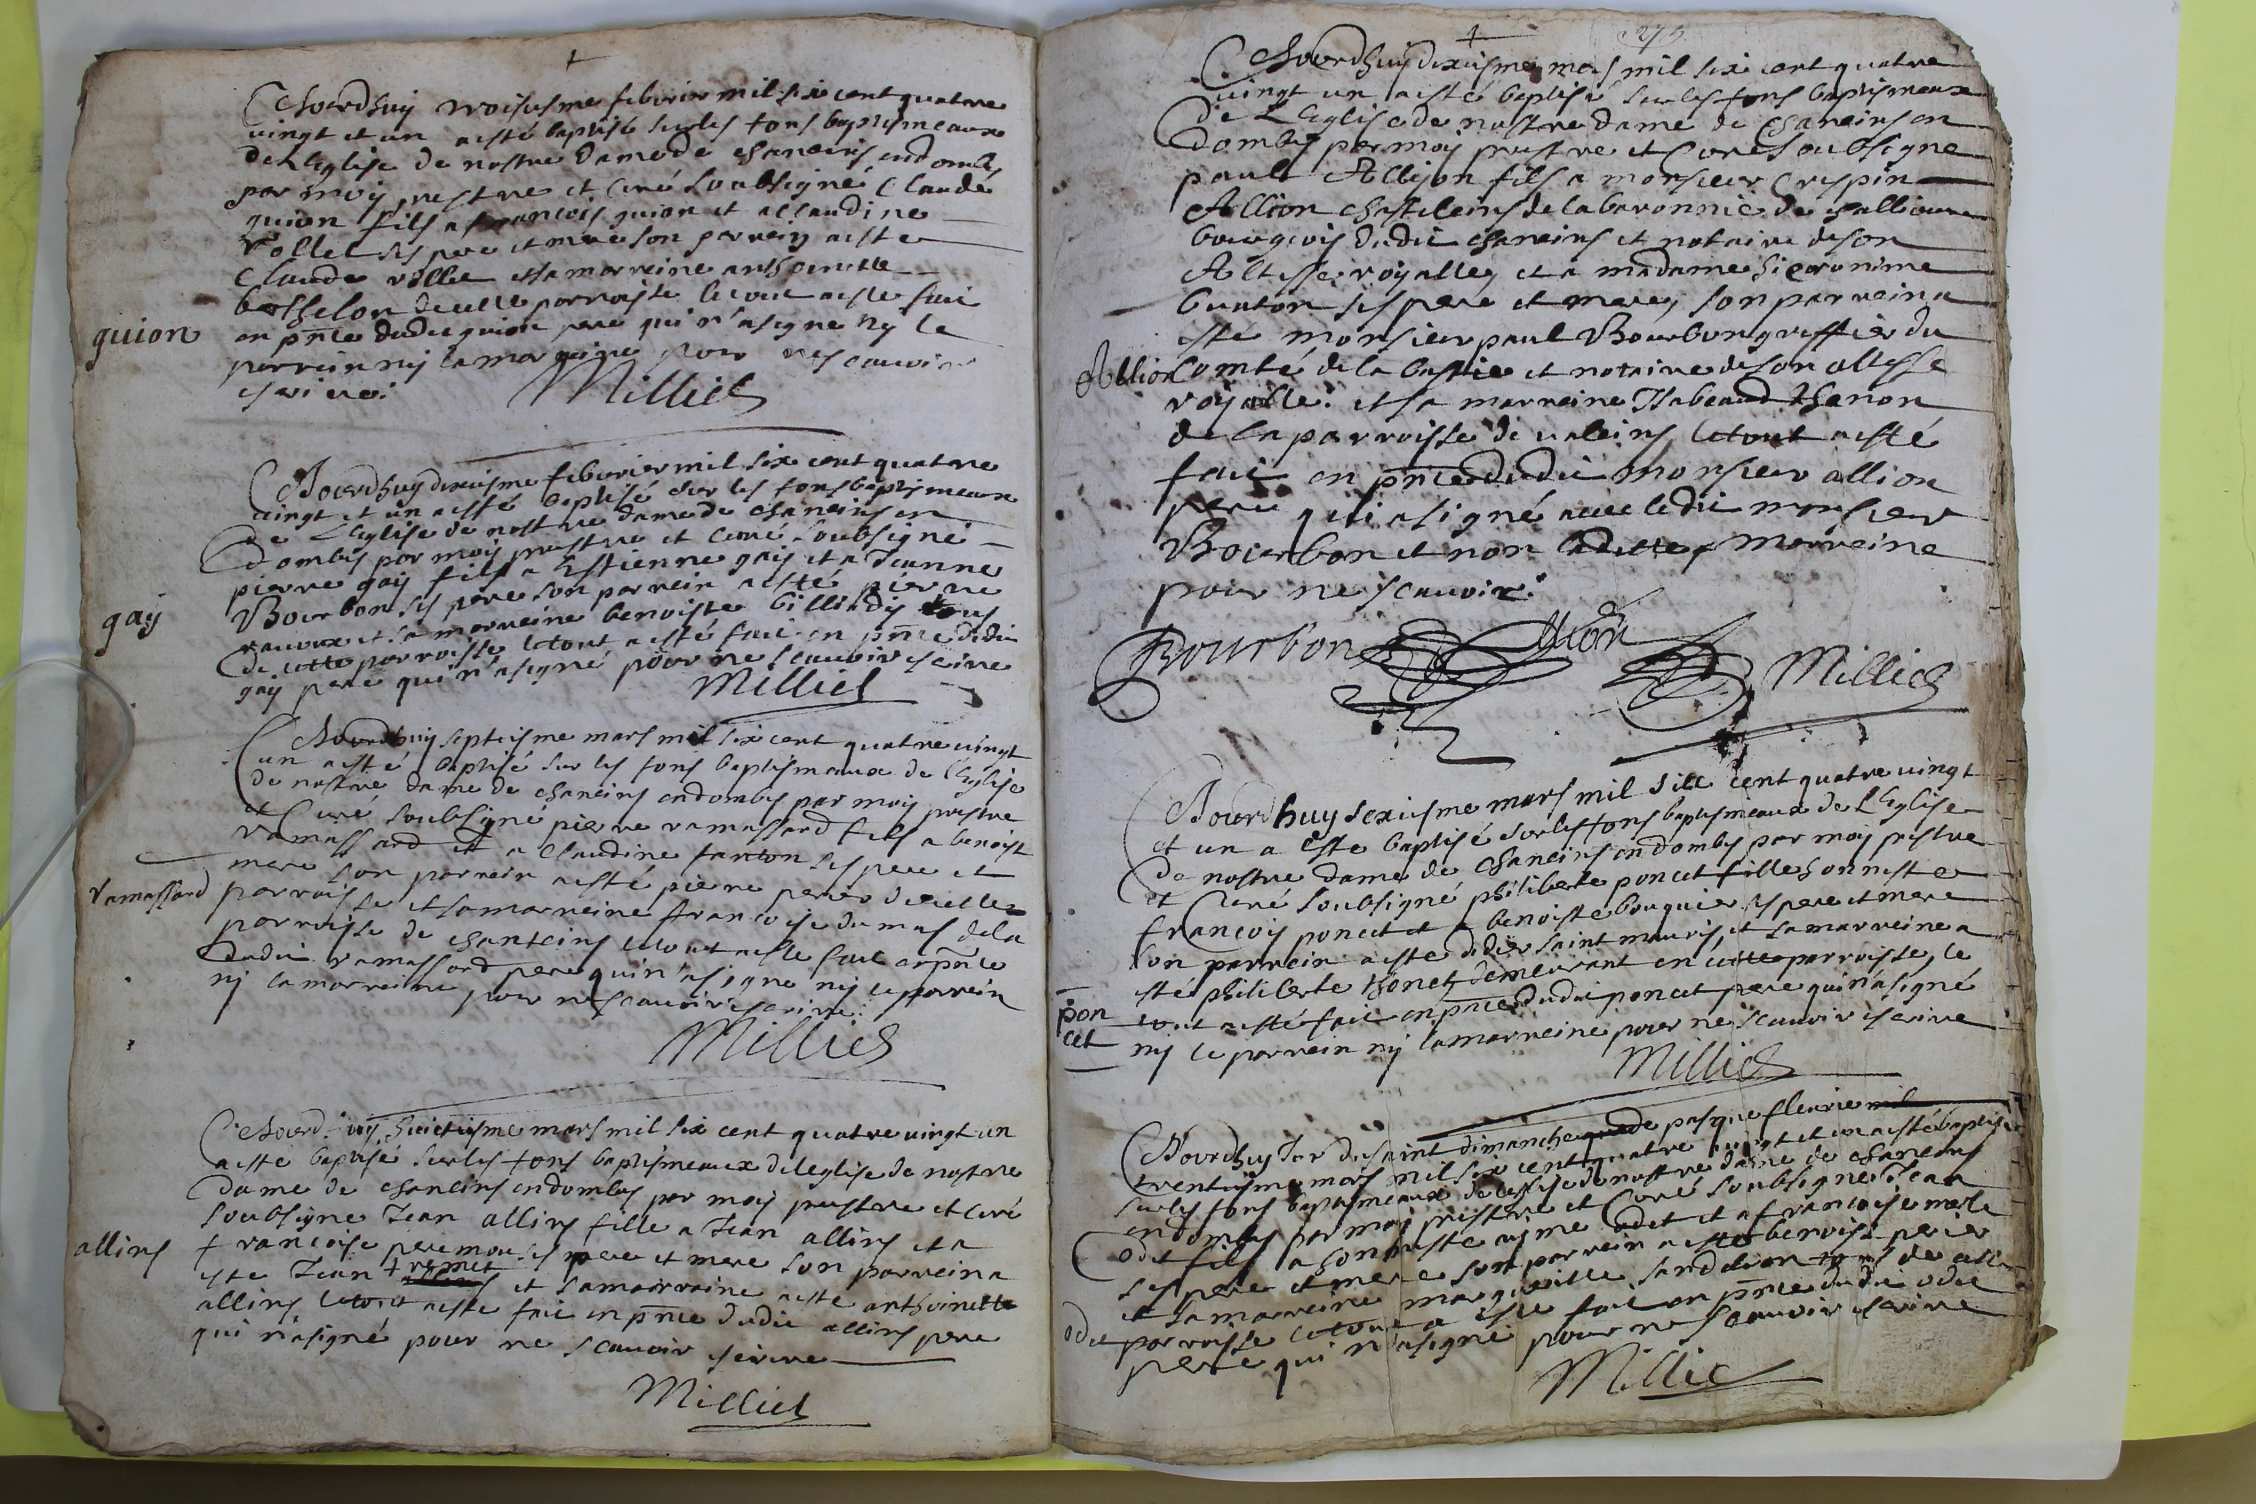 Ajourdhuy troisiesme febvrier mil six cent quatre
vingt et un a esté baptisé sur les fons baptismeaux
de leglise de nostre dame de chaneins en dombes
par moy prestre et curé soubsigné Claude
guion fils a francois guion et a claudine
rollet ses pere et mere son parrein a esté
Claude rollet et sa marreine anthoinette
berthelon de cette parroisse le tout a esté faict
guion
en pnce dudict guion pere qui n'a signe ny le
parrein ny la marreine pour ne scauoir
escrire.
Milliet
Ajourdhuy dixiesme febvrier mil six cent quatre
vingt et un a esté baptisé sur les fons baptismeaux
de L'Eglise de nostre dame de chaneins en
dombes par moy prestre et curé soubsigné
pierre gay fils a Estienne gay et a Jeanne
Bourbon ses pere son parrein a esté pierre
gay
et sa marreine benoiste tous
de cette parroisse le tout a esté faict en pnce dudict
gay pere qui n'a signé pour ne scauoir escrire
Milliet
Ajourdhuy septiesme mars mil six cent quatre vingt
un a esté baptisé sur les fons baptismeaux de l'Eglise
de nostre dame de chaneins en dombes par moy prestre
et Curé soubsigné pierre ramassard fils a benoist
ramassard et a claudine fanton ses pere et
mere son parrein a esté pierre perier de cette
ramassard
parroisse et sa marreine francoise dumas de la
parroisse de chanteins le tout a esté faict en pnce
dudict ramassard pere qui n'a signe ny le parrein
ny la marreine pour ne scauoir escrire.
Milliet
Ajourdhuy huictiesme mars mil six cent quatre vingt un
a esté baptisé sur les fons baptismeaux de leglise de nostre
dame de chaneins en dombes par moy prestre et curé
soubsigne Jean allins fille a Jean allins et a
allins
francoise ses pere et mere son parrein a
esté Jean et sa marreine a esté anthoinette
allins le tout a esté faict en pnce dudict allins pere
qui n'a signé pour ne scauoir escrire
Milliet
275
Ajourdhuy dixiesme mars mil six cent quatre
vingt un a esté baptisé sur les fons baptismeaux
de L'Eglise de nostre dame de Chaneins en
dombes par moy prestre et Curé soubsigne
paul Allion fils a monsieur Crespin
Allion chastelains de la baronnie de
bourgeois dudict chaneins et notaire de son
Altesse royalle, et a madame hieronime
buaton ses pere et mere, son parrein a
esté monsieur paul Bourbon greffier du
Allion
Comté de la bastie et notaire de son altesse
royalle. et sa marreine Isabeaud thenon
de la parroisse de valeins, le tout a esté
faict en pnce dudict monsieur allion
pere qui a signé auec ledict monsieur
Bourbon et non laditte marreine
pour ne scauoir.
Bourbon Allion Milliet
Ajourdhuy sexiesme mars mil six cent quatre vingt
et un a este baptisé sur les fons baptismeaux de L'Eglise
de nostre dame de chaneins en dombes par moy prestre
et Curé soubsigné philiberte poncet fille honneste
francois poncet et a benoiste bouquier ses pere et mere
son parrein a esté didier saint mauris, et sa marreine a
esté philiberte thonet, demeurant en cette parroisse, le
pon
cet
tout a esté faict en pnce dudict poncet pere qui n'a signé
ny le parrein ny la marreine pour ne scauoir escrire
Milliet
Ajourdhuy Jor du saint dimanche de pasque fleurie
trentiesme mars mil six cent quatre vingt et un a esté baptisé
sur les fons baptismeaux de leglise de nostre dame de chaneins
en dombes par moy prestre et Curé soubsigné Jean
odet fils a honneste aimé odet et a francoise merle
ses pere et mere son parrein a esté benoist perier
et sa marreine marguerite sandelion tous de cette
odet
parroisse le tout a esté faict en pnce dudict odet
pere qui n'a signé pour ne scauoir escrire
Milliet